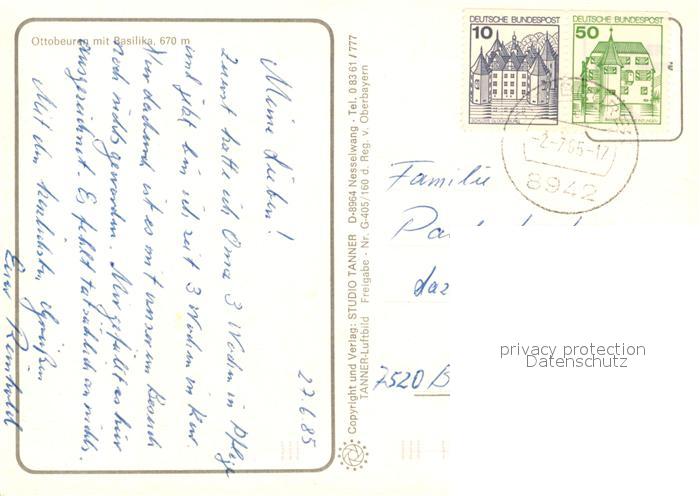 Ottobeuren mit Basilika, 670 m
27.6.85
Meine Lieben!
Zuerst hatte ich Oma 3 Wochen in Pflege
und jetzt bin ich seit 3 Wochen in Kur.
Nur dadurch ist es mit unserem Besuch
noch nichts geworden. Mir gefällt es hier
ausgezeichnet. Es fehlt tatsächlich an nichts.
Mit den herzlichsten Grüßen
Euer Reinhold
Copyright und Verlag: STUDIO TANNER D-8964 Nesselwang · Tel. 0 83 61 / 777
TANNER-Luftbild Freigabe - Nr. G-405/160 d. Reg. v. Oberbayern
DEUTSCHE BUNDESPOST
10
DEUTSCHE BUNDESPOST
50
-2-7.85-17
8942
Familie
7520 B
privacy protection
Datenschutz